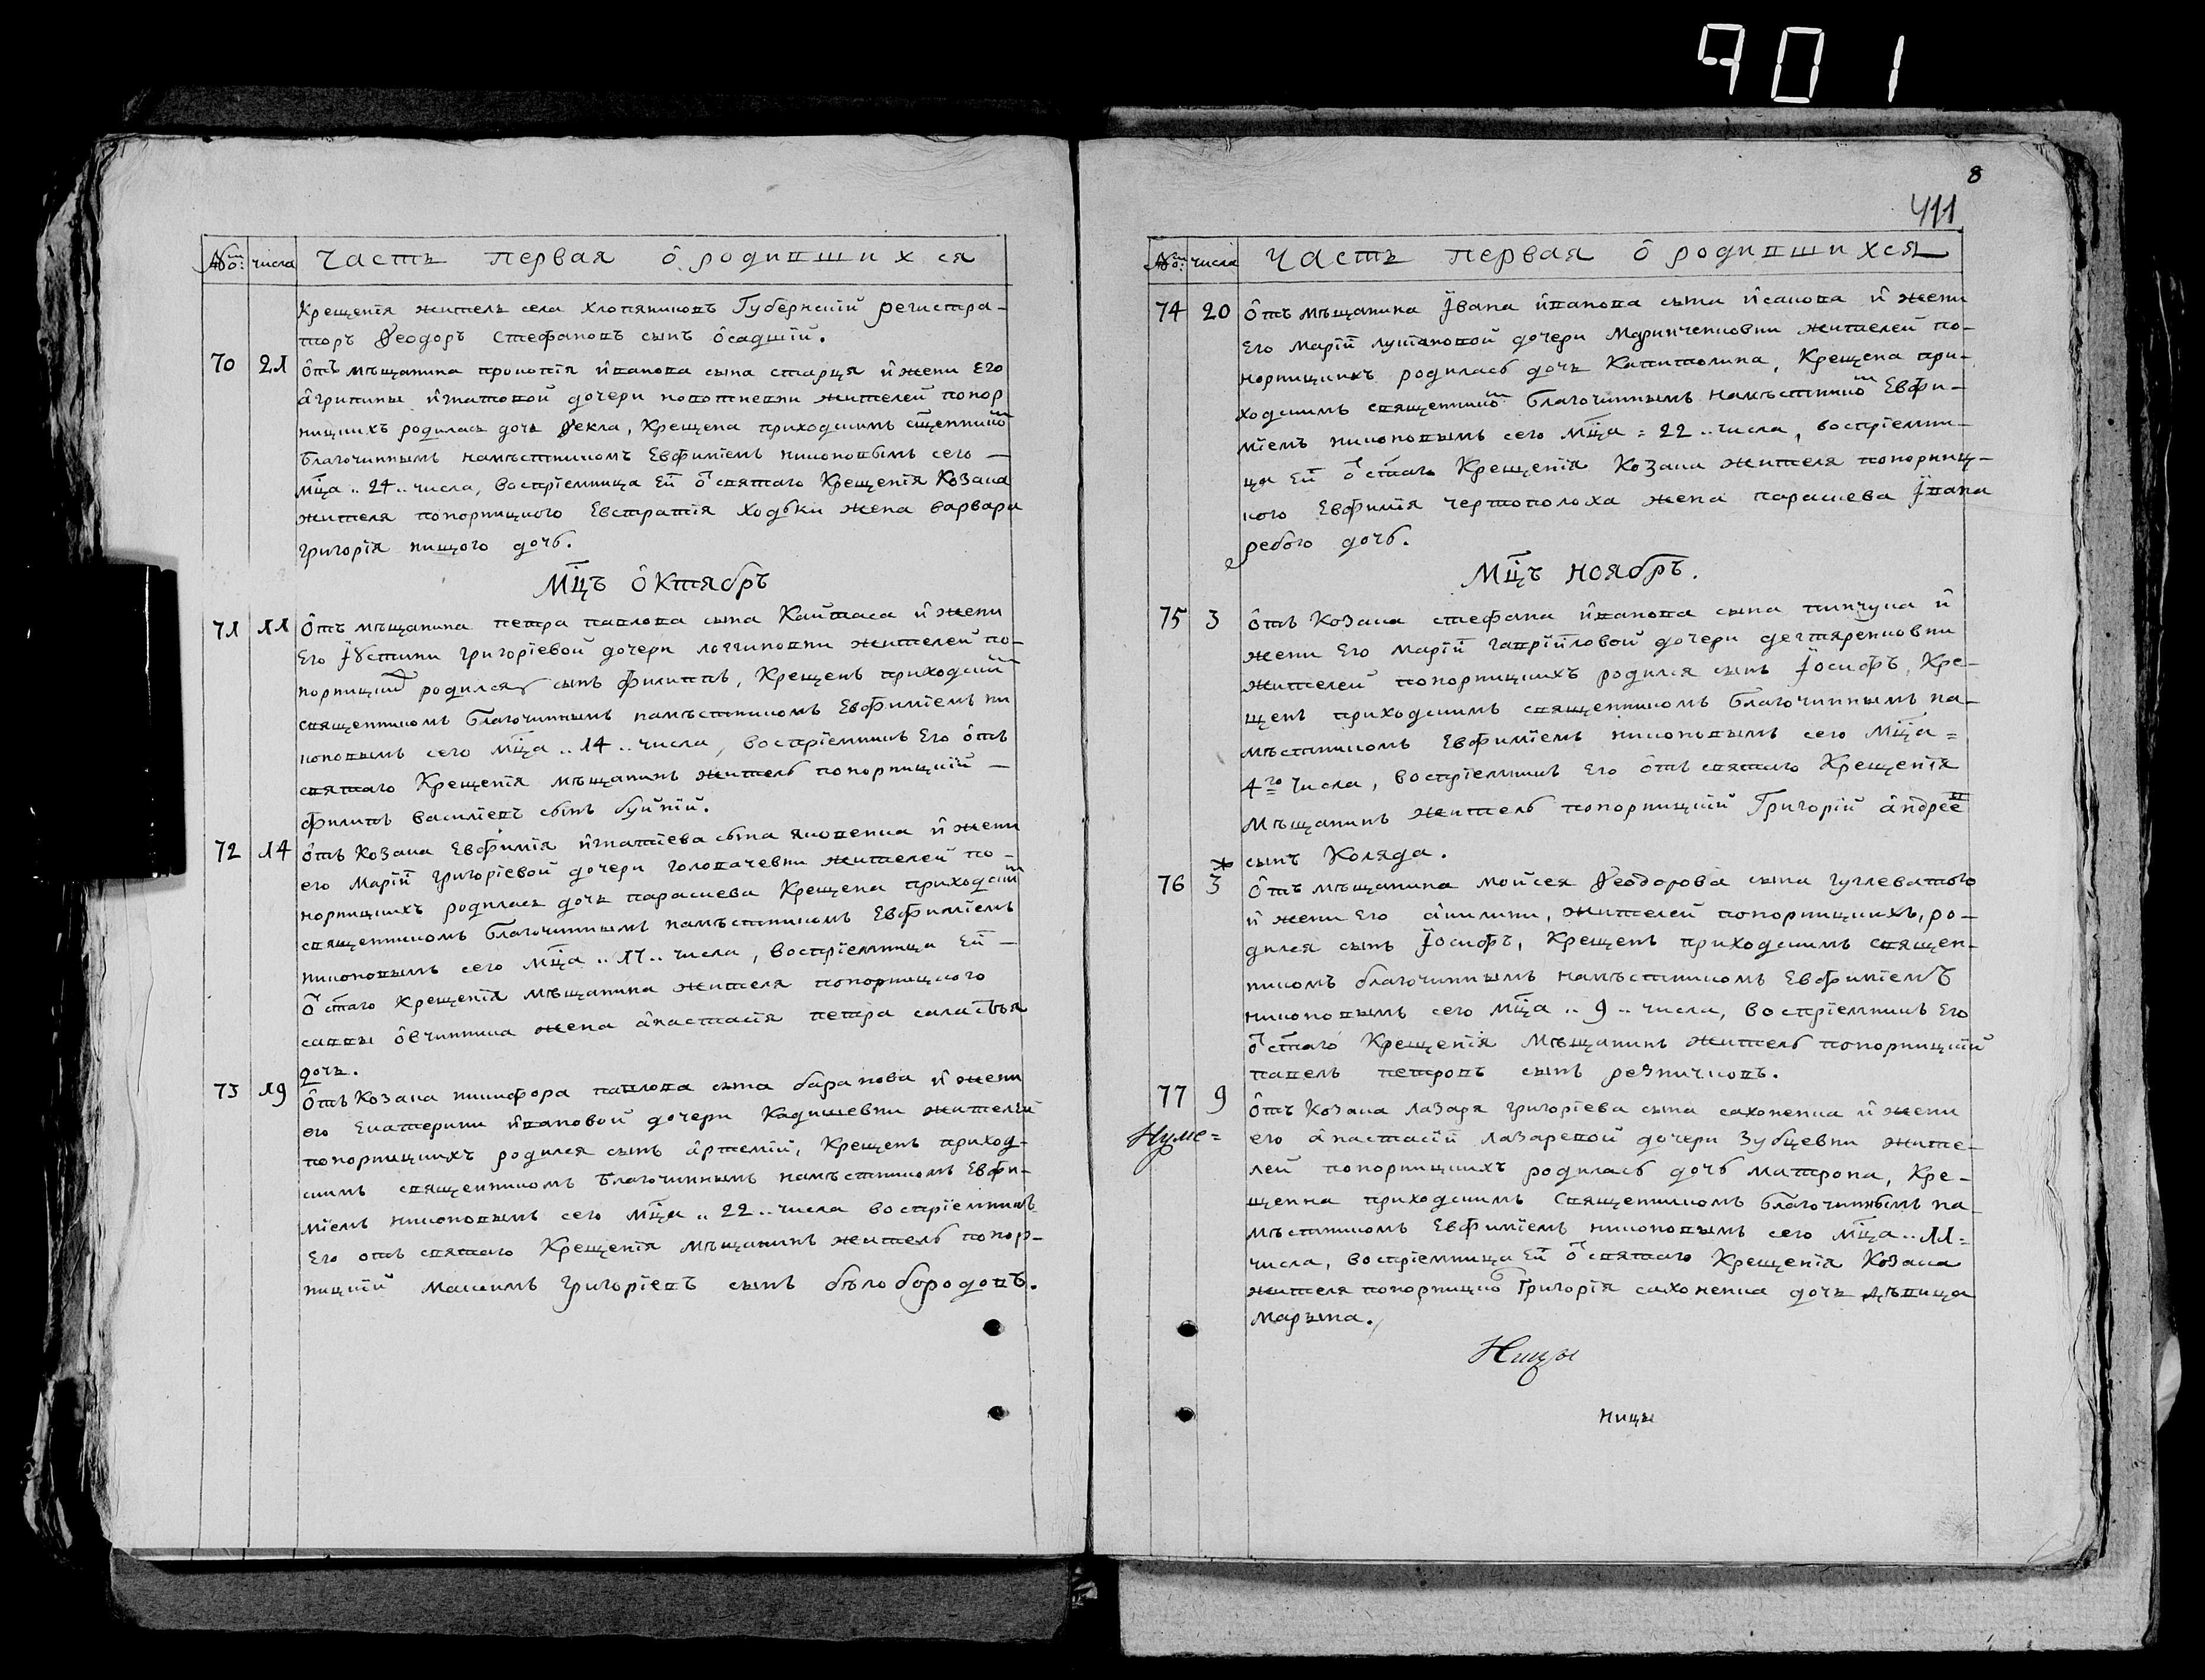 901
№: числа Часть первая о родившихся
Крещенія житель села хлопяниковъ Губернскій регистра-
торъ Ѳеодоръ Стефановъ сынъ осадшій.
70 21 Отъ мѣщанина прокопія иванова сына старця и жени Его
агрипины игнатовой дочери жителей попор
ницкихъ родилась дочь Ѳекла, Крещена приходскимъ сщенник
благочиннымъ намѣстникомъ Евфиміемъ никоновымъ сего –
мца .. 24 .. числа, воспріемница Ей о святаго Крещенія Козака
жителя попорницкого Евстратія ходьки жена варвара
григорія нищого дочь.
Мцъ Октябрь
71 11 Отъ мѣщанина петра павлова сына Кайтаса и жени
Его Іустини григоріевой дочери логгиновни жителей по-
порницких родился сынъ филиппъ, Крещенъ приходским
священникомъ благочиннымъ намѣстникомъ Евфиміемъ ни
коновымъ сего мца .. 14 .. числа, воспріемникъ Его отъ
святаго Крещенія мѣщанинъ житель попорницкій –
филипъ василіевъ сынъ буйній.
72 14 Отъ Козака Евфимія игнатіева сына яковенка и жени
его Маріи григоріевой дочери голопачевни жителей по-
порницкихъ родилась дочь параскева Крещена приходским
священникомъ благочиннымъ намѣстникомъ Евфиміемъ
никоновымъ сего мца .. 17 .. числа, воспріемница Ей –
о стаго Крещенія мѣщанина жителя попорницкого
саввы овчинника жена анастасія петра
дочь.
73 19 Отъ Козака никифора павлова сына баранова и жени
его Екатерини ивановой дочери Кадишевни жителей
попорницкихъ родился сынъ артемій, Крещенъ приход-
скимъ священникомъ благочиннымъ намѣстникомъ Евфи-
міемъ никоновымъ сего мца .. 22 .. числа воспріемникъ
Его отъ святаго Крещенія мѣщанинъ житель попор-
ницкій Максимъ григоріевъ сынъ бѣлобородовъ.
8
411
№: числа Часть первая о родившихся
74 20 Отъ мѣщанина Івана иванова сына исакова и жени
Его Маріи лукіановой дочери Маринченковни жителей по-
порницкихъ родилась дочь Капитолина, Крещена при-
ходскимъ священник благочиннымъ намѣстник Евфи-
міемъ никоновымъ сего Мца = 22 .. числа, воспріемни-
ца Ей о стаго Крещенія Козака жителя попорниц-
кого Евфимія чертополоха жена парасцева Івана
ребого дочь.
Мцъ Ноябрь.
75 3 Отъ Козака стефана иванова сына пинчука и
жени Его Маріи гавріиловой дочери дегтяренковни
жителей попорницкихъ родился сынъ Іосифъ, Кре-
щенъ приходскимъ священникомъ благочиннымъ на-
мѣстникомъ Евфиміемъ никоновымъ сего Мца =
4го числа, воспріемникъ Его отъ святаго Крещенія
Мѣщанинъ житель попорницкій Григорій андрее
сынъ Коляда.
76 3 Отъ мѣщанина мойсея Ѳеодорова сына гуглеватого
и жени Его акилини, жителей попорницкихъ, ро-
дился сынъ Іосифъ, Крещенъ приходскимъ священ-
никомъ благочиннымъ намѣстникомъ Евфиміемъ
никоновымъ сего мца .. 9 .. числа, воспріемникъ Его
о стаго Крещенія Мѣщанинъ житель попорницкій
павелъ петровъ сынъ резничковъ.
77 9 Отъ Козака лазаря григоріева сына сахоненка и жени
его анастасіи лазаревой дочери Зубцевни жите-
лей попорницкихъ родилась дочь матрона, Кре-
щенна приходскимъ священникомъ благочиннымъ на
мѣстникомъ Евфиміемъ никоновымъ сего мца .. 11 =
числа, воспріемница Ей о святаго Крещенія Козака
жителя попорницко Григорія сахоненка дочь дѣвица
Марьяна.